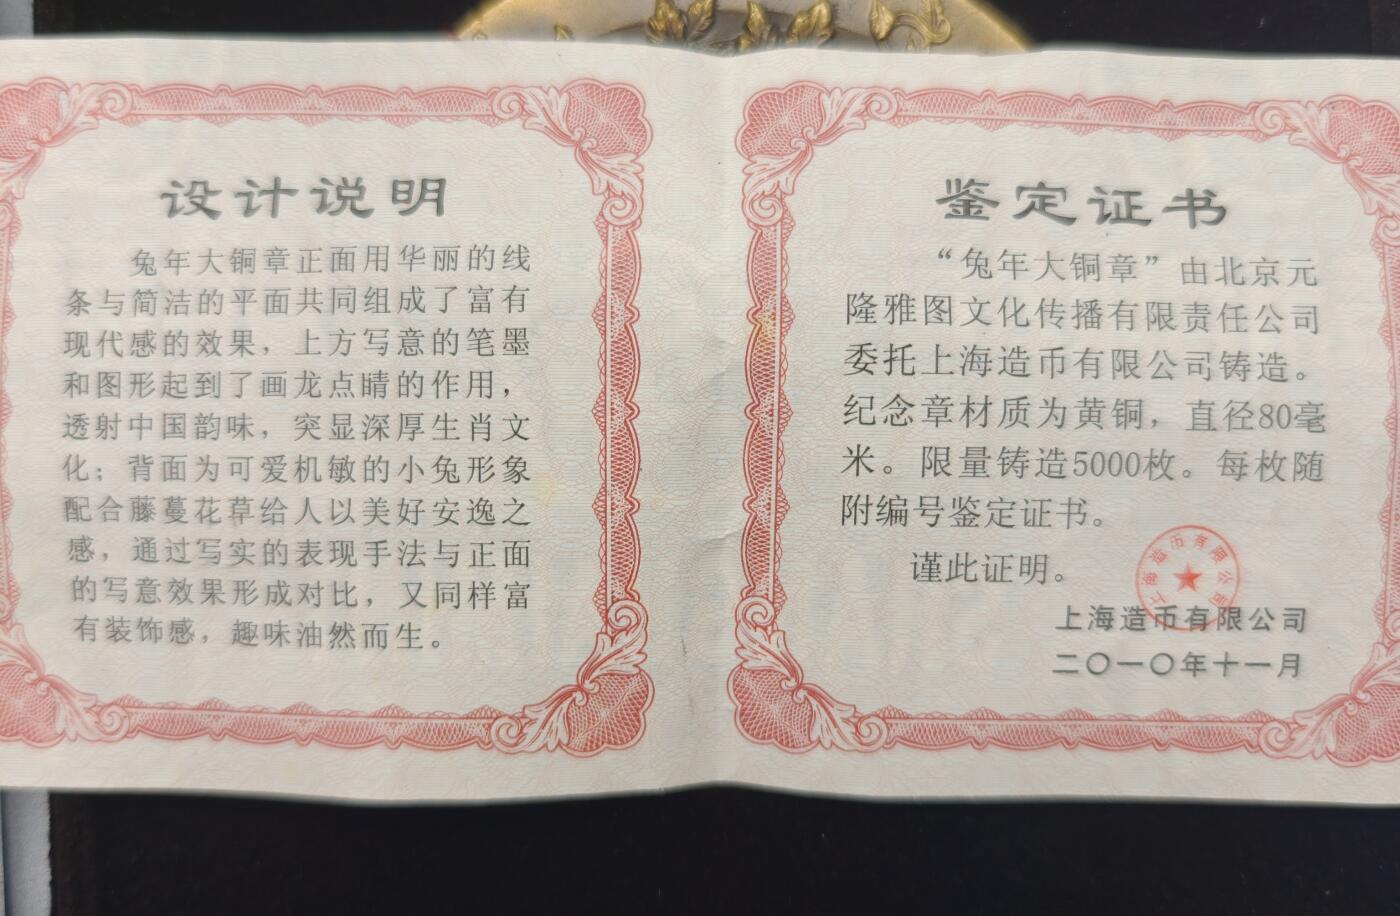 设计说明
兔年大铜章正面用华丽的线
条与简洁的平面共同组成了富有
现代感的效果，上方写意的笔墨
和图形起到了画龙点睛的作用，
透射中国韵味，突显深厚生肖文
化；背面为可爱机敏的小兔形象
配合藤蔓花草给人以美好安逸之
感，通过写实的表现手法与正面
的写意效果形成对比，又同样富
有装饰感，趣味油然而生。
鉴定证书
“兔年大铜章”由北京元
隆雅图文化传播有限责任公司
委托上海造币有限公司铸造。
纪念章材质为黄铜，直径80毫
米。限量铸造5000枚。每枚随
附编号鉴定证书。
谨此证明。
上海造币有限公司
上海造币有限公司
二〇一〇年十一月